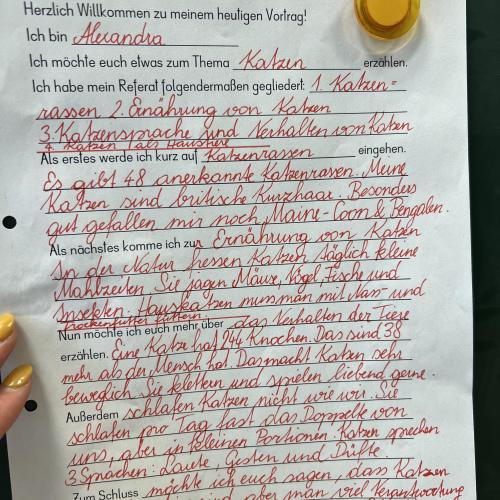 Herzlich Willkommen zu meinem heutigen Vortrag!
Ich bin Alexandra
Ich möchte euch etwas zum Thema Katzen erzählen.
Ich habe mein Referat folgendermaßen gegliedert: 1. Katzen=
rassen 2. Ernährung von Katzen
3. Katzensprache und Verhalten von Katzen
4. Katzen als Haustiere
Als erstes werde ich kurz auf Katzenrassen eingehen.
Es gibt 48 anerkannte Katzenrassen. Meine
Katzen sind britische Kurzhaar. Besonders
gut gefallen mir noch Maine-Coon & Bengalen.
Als nächstes komme ich zur Ernährung von Katzen
In der Natur fressen Katzen täglich kleine
Mahlzeiten. Sie jagen Mäuse, Vögel, Fische und
Insekten. Hauskatzen muss man mit Nass- und
Trockenfutter füttern.
Nun möchte ich euch mehr über das Verhalten der Tiere
erzählen. Eine Katze hat 244 Knochen. Das sind 38
mehr als der Mensch hat. Das macht Katzen sehr
beweglich. Sie klettern und spielen liebend gerne.
Außerdem schlafen Katzen nicht wie wir. Sie
schlafen pro Tag fast das Doppelte von
uns, aber in kleinen Portionen. Katzen sprechen
3 Sprachen: Laute, Gesten und Düfte.
Zum Schluss möchte ich euch sagen, dass Katzen
sind, aber man viel Verantwortung